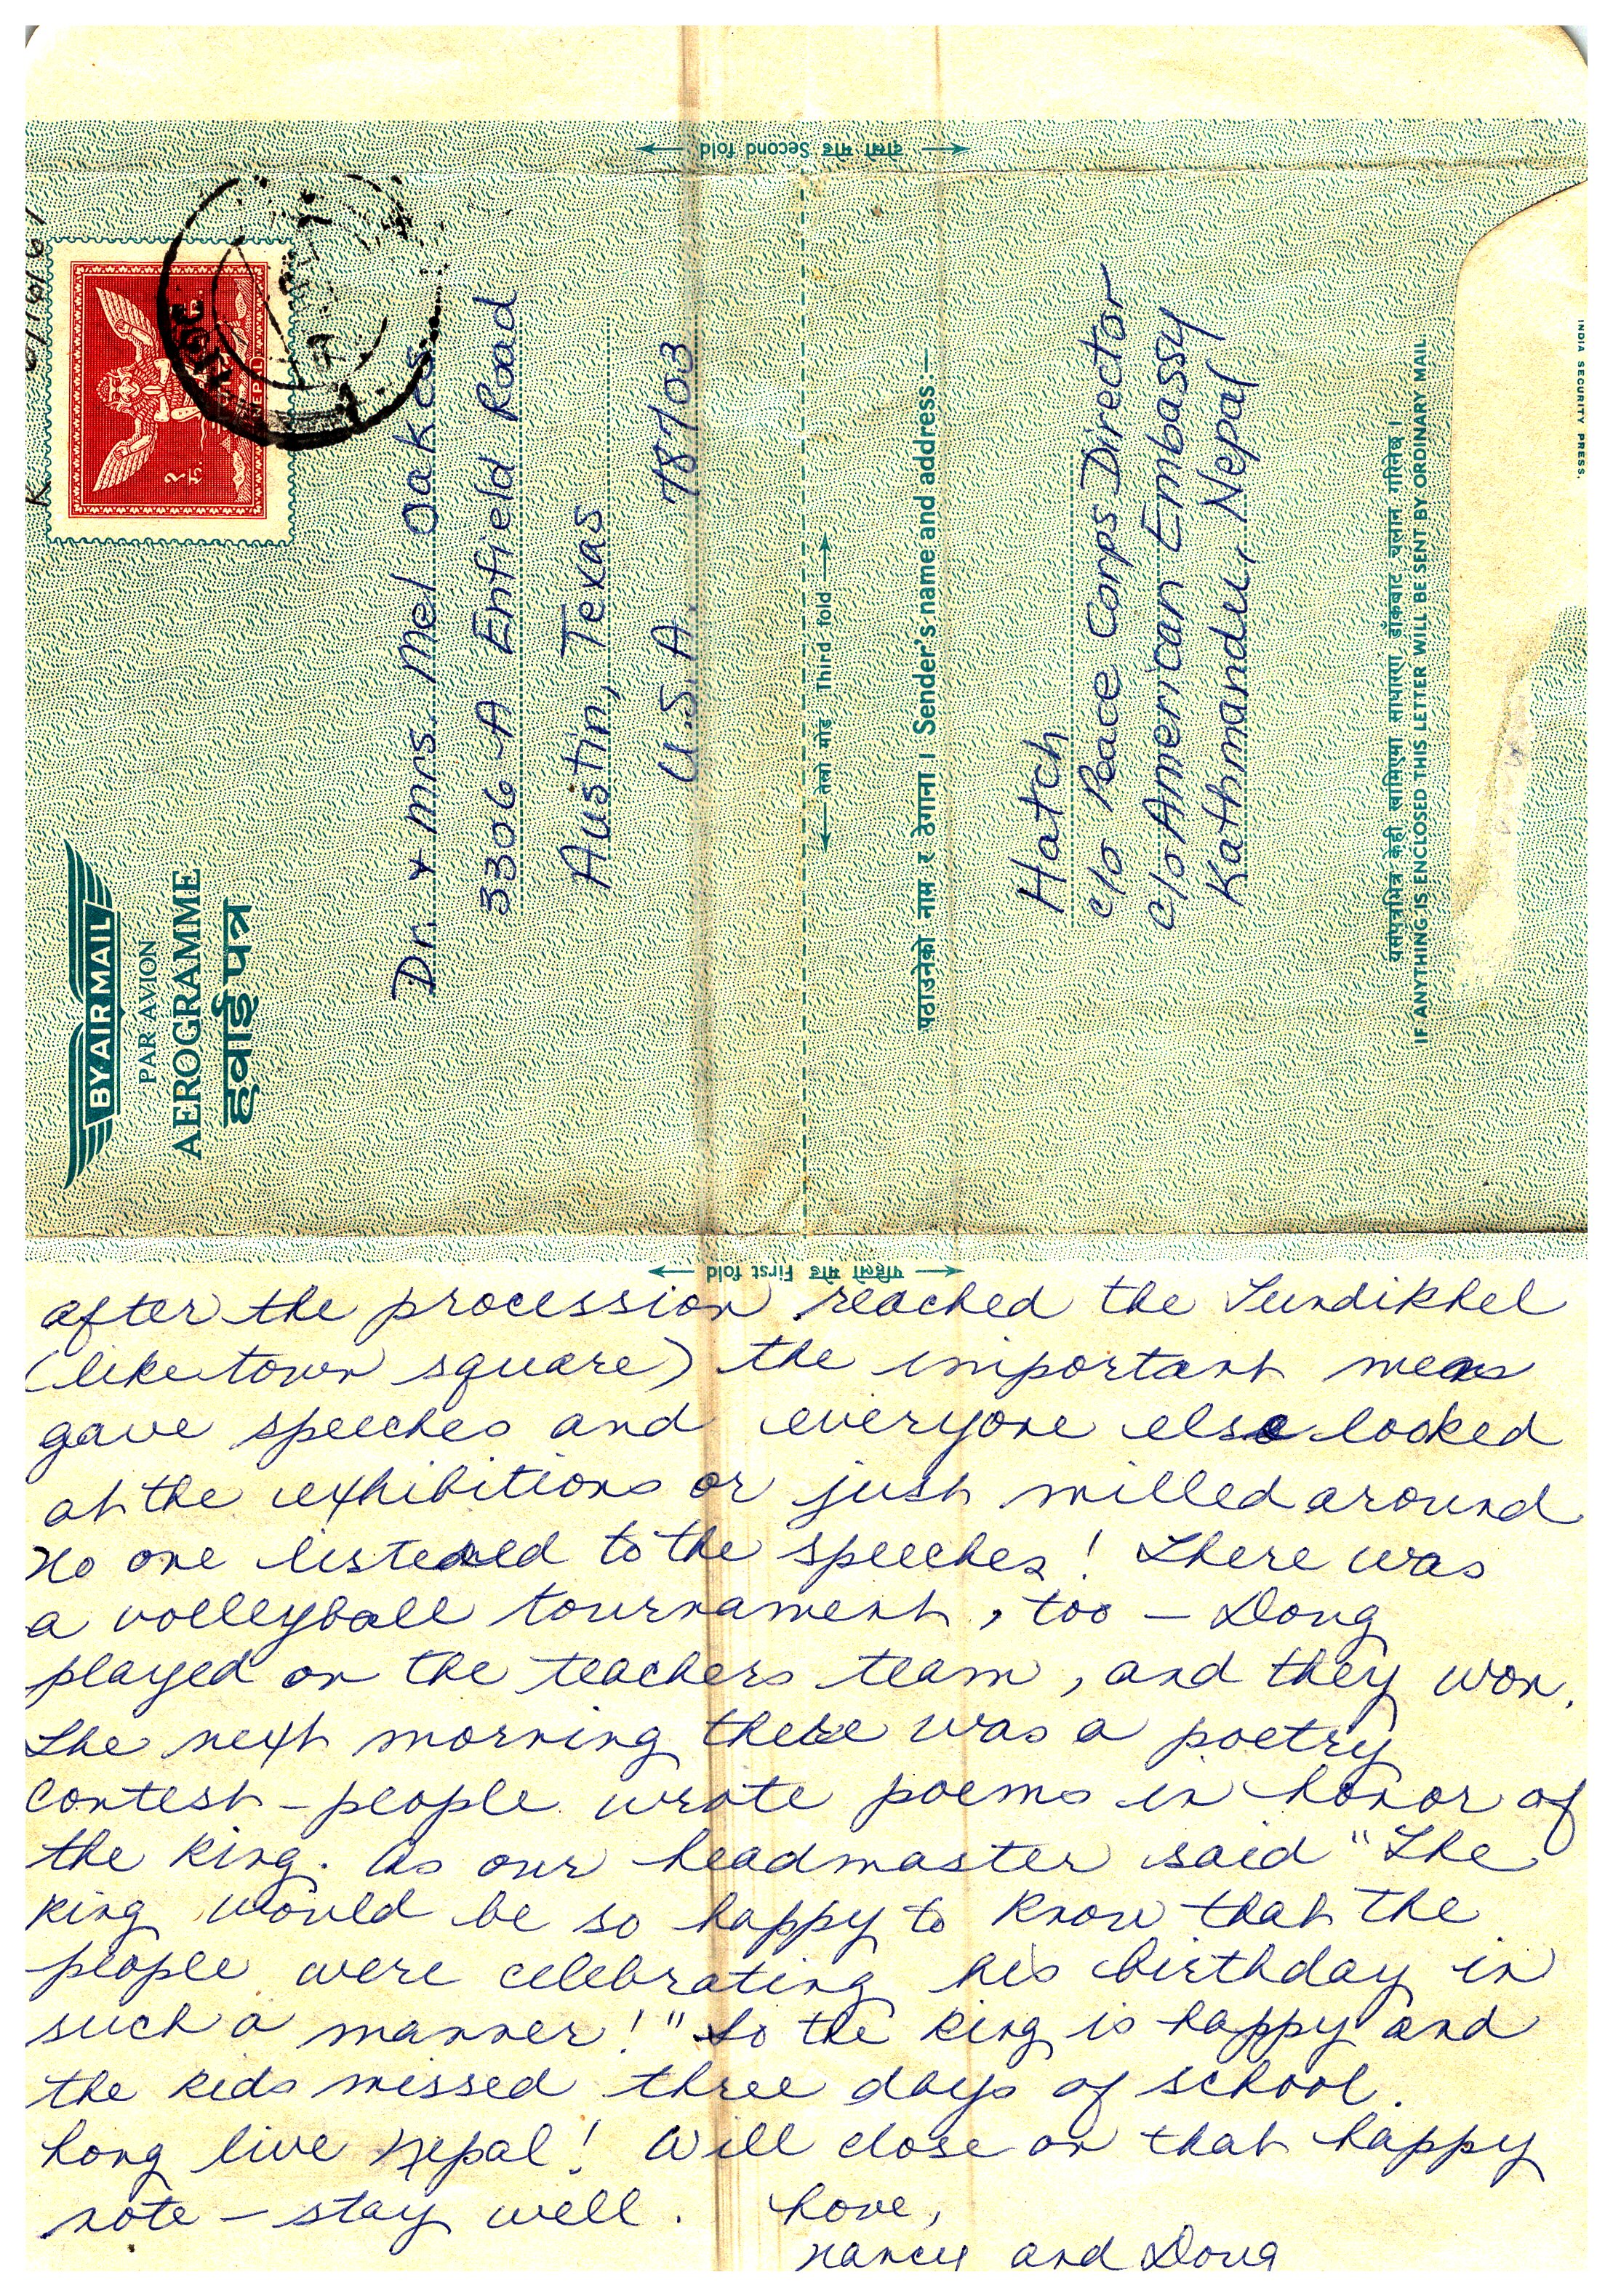 दोस्रो मोड Second fold
BY AIR MAIL
PAR AVION
AEROGRAMME
हवाई पत्र
NEPAL
Dr. & Mrs. Mel Oakes
3306-A Enfield Road
Austin, Texas
U.S.A. 78703
तेस्रो मोड Third fold
पठाउनेको नाम र ठेगाना । Sender's name and address :—
Hatch
c/o Peace Corps Director
c/o American Embassy
Kathmandu, Nepal
यसपत्रभित्र केही खामिएमा साधारण डाँकबाट चलान गरिनेछ ।
IF ANYTHING IS ENCLOSED THIS LETTER WILL BE SENT BY ORDINARY MAIL.
INDIA SECURITY PRESS.
पहिलो मोड First fold
after the procession reached the Tundikhel
(like town square) the important men
gave speeches and everyone else looked
at the exhibitions or just milled around
No one listened to the speeches! There was
a volleyball tournament, too – Doug
played on the teachers team, and they won.
The next morning there was a poetry
contest – people wrote poems in honor of
the king. As our headmaster said "The
king would be so happy to know that the
people were celebrating his birthday in
such a manner!" So the king is happy and
the kids missed three days of school.
Long live Nepal! Will close on that happy
note – stay well. Love,
Nancy and Doug